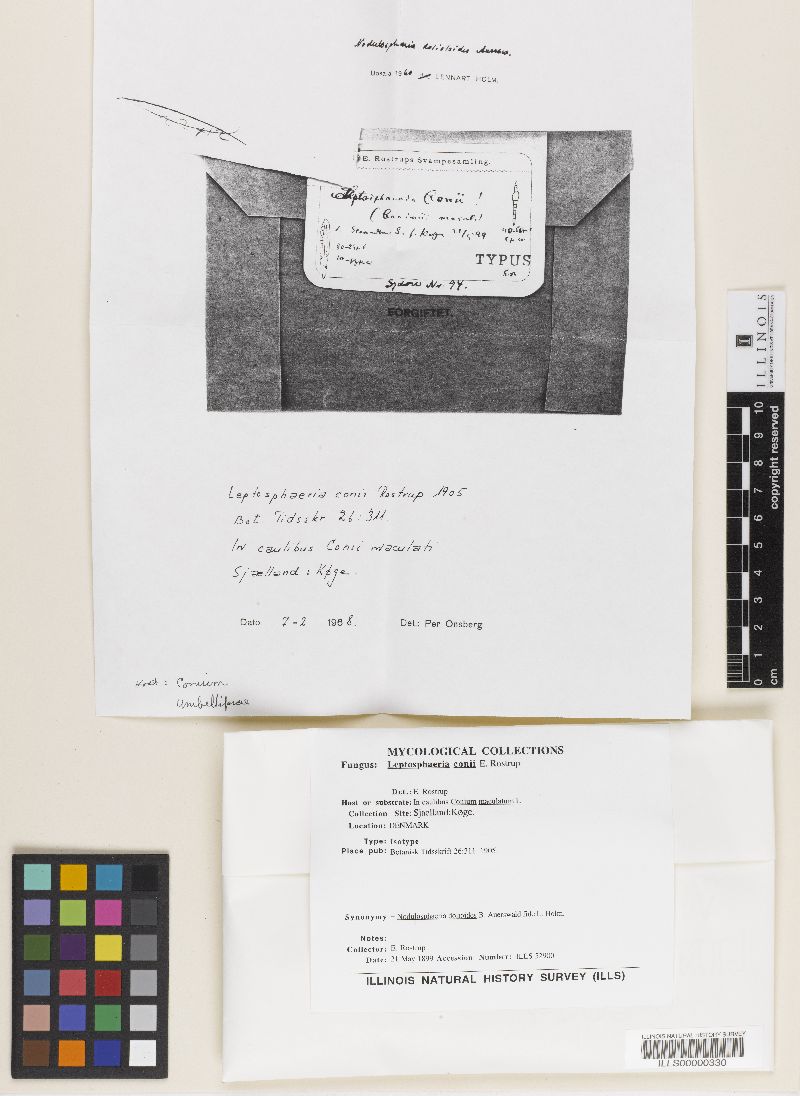 Nodulosphaeria
Upsala 1960 LENNART HOLM.
E. Rostrups Svampesamling.
Leptosphaeria Conii !
TYPUS
Sydow No. 94.
FORGIFTET.
Leptosphaeria conii Rostrup 1905
Bot. Tidsskr 26:311.
In caulibus Conii maculati
Sjælland: Køge.
Dato 7-2 1968. Det.: Per Onsberg
Conium
Umbelliferae
ILLINOIS
copyright reserved
0 1 2 3 4 5 6 7 8 9 10
cm
MYCOLOGICAL COLLECTIONS
Fungus: Leptosphaeria conii E. Rostrup
Det.: E. Rostrup
Host or substrate: In caulibus Conium maculatum L.
Collection Site: Sjaelland:Køge.
Location: DENMARK
Type: Isotype
Place pub: Botanisk Tidsskrift 26:311 1905
Synonymy = Nodulosphaeria B. Auerswald fide L. Holm.
Notes:
Collector: E. Rostrup
Date: 21 May 1899 Accession Number: ILLS 52900
ILLINOIS NATURAL HISTORY SURVEY (ILLS)
ILLINOIS NATURAL HISTORY SURVEY
ILLS00000330